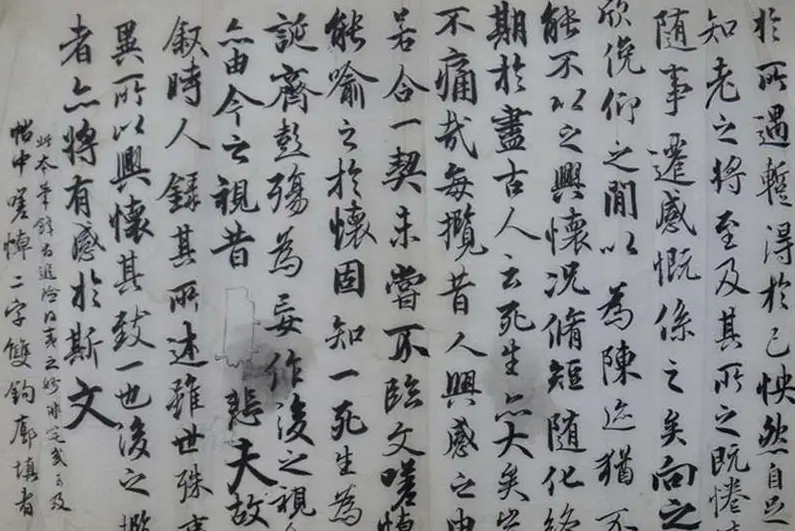 於所遇暫得於己怏然自足
知老之將至及其所之既惓
隨事遷感慨係之矣向之
欣俛仰之間以為陳迹猶不
能不以之興懷況脩短隨化終
期於盡古人云死生亦大矣豈
不痛哉每攬昔人興感之由
若合一契未嘗不臨文嗟悼
能喻之於懷固知一死生為
誕齊彭殤為妄作後之視今
亦由今之視昔 悲夫故
敘時人錄其所述雖世殊事
異所以興懷其致一也後之攬
者亦將有感於斯文
此本筆鋒
帖中嗟悼二字雙鉤廓填者